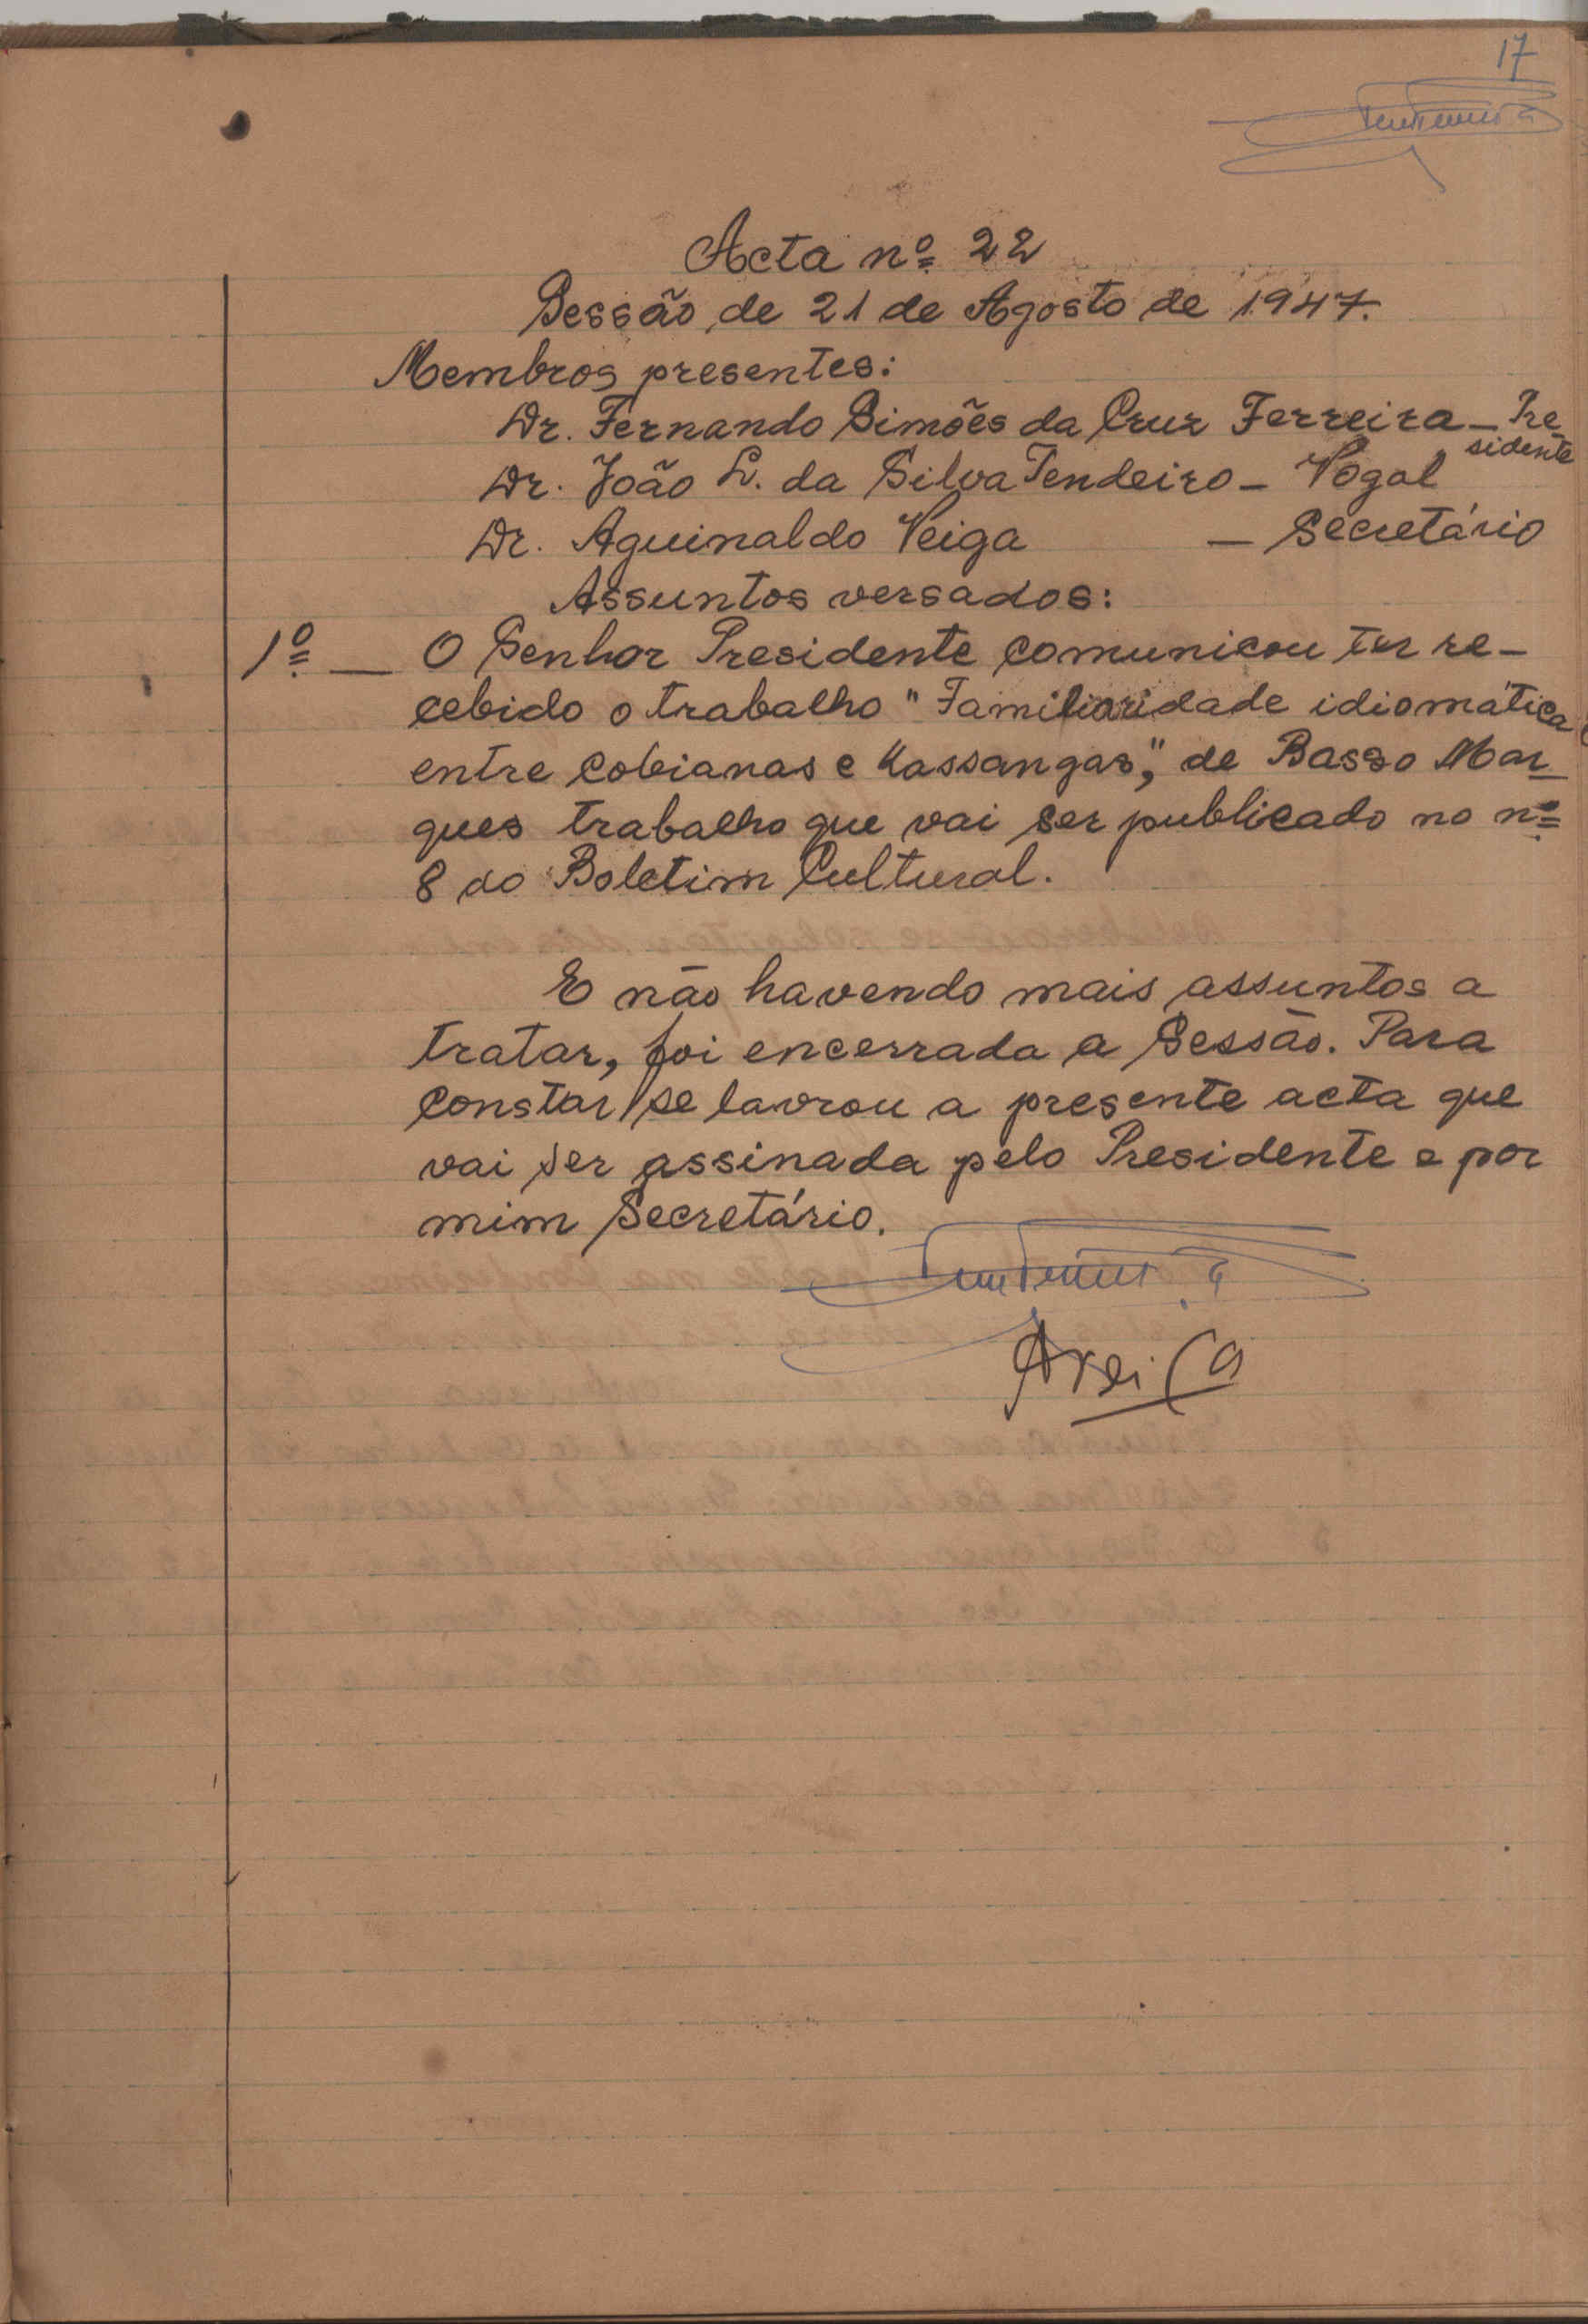 17
Acta nº 22
Sessão de 21 de Agosto de 1947.
Membros presentes:
Dr. Fernando Simões da Cruz Ferreira — Pre
sidente
Dr. João L. da Silva Tendeiro — Vogal
Dr. Aguinaldo Veiga — Secretário
Assuntos versados:
1º — O Senhor Presidente comunicou ter re-
cebido o trabalho "Familiaridade idiomática
entre cobianas e Kassangas", de Basso Mar
ques trabalho que vai ser publicado no nº
8 do Boletim Cultural.
E não havendo mais assuntos a
tratar, foi encerrada a Sessão. Para
constar se lavrou a presente acta que
vai ser assinada pelo Presidente e por
mim Secretário.
AVeiga